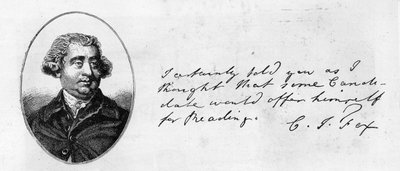 I certainly told you as I
thought that some Candi-
date would offer himself
for Reading.
C. J. Fox